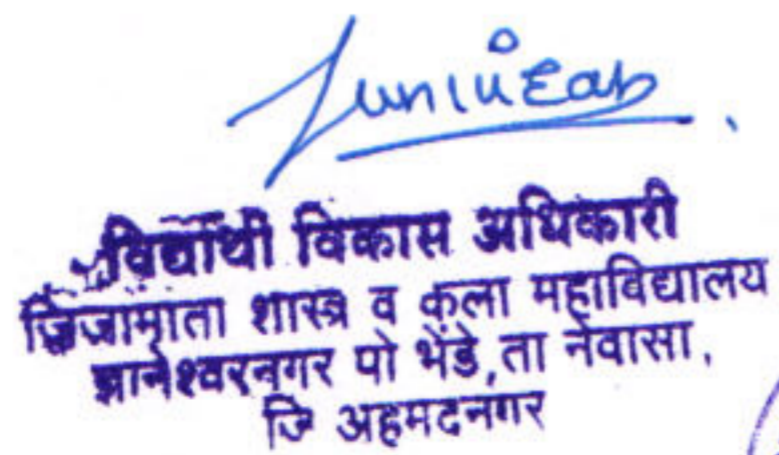 विद्यार्थी विकास अधिकारी
जिजामाता शास्त्र व कला महाविद्यालय
ज्ञानेश्वरनगर पो भेंडे,ता नेवासा.
जि अहमदनगर